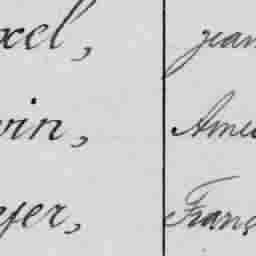 xel, jean
vin, Amé
yer, Franç